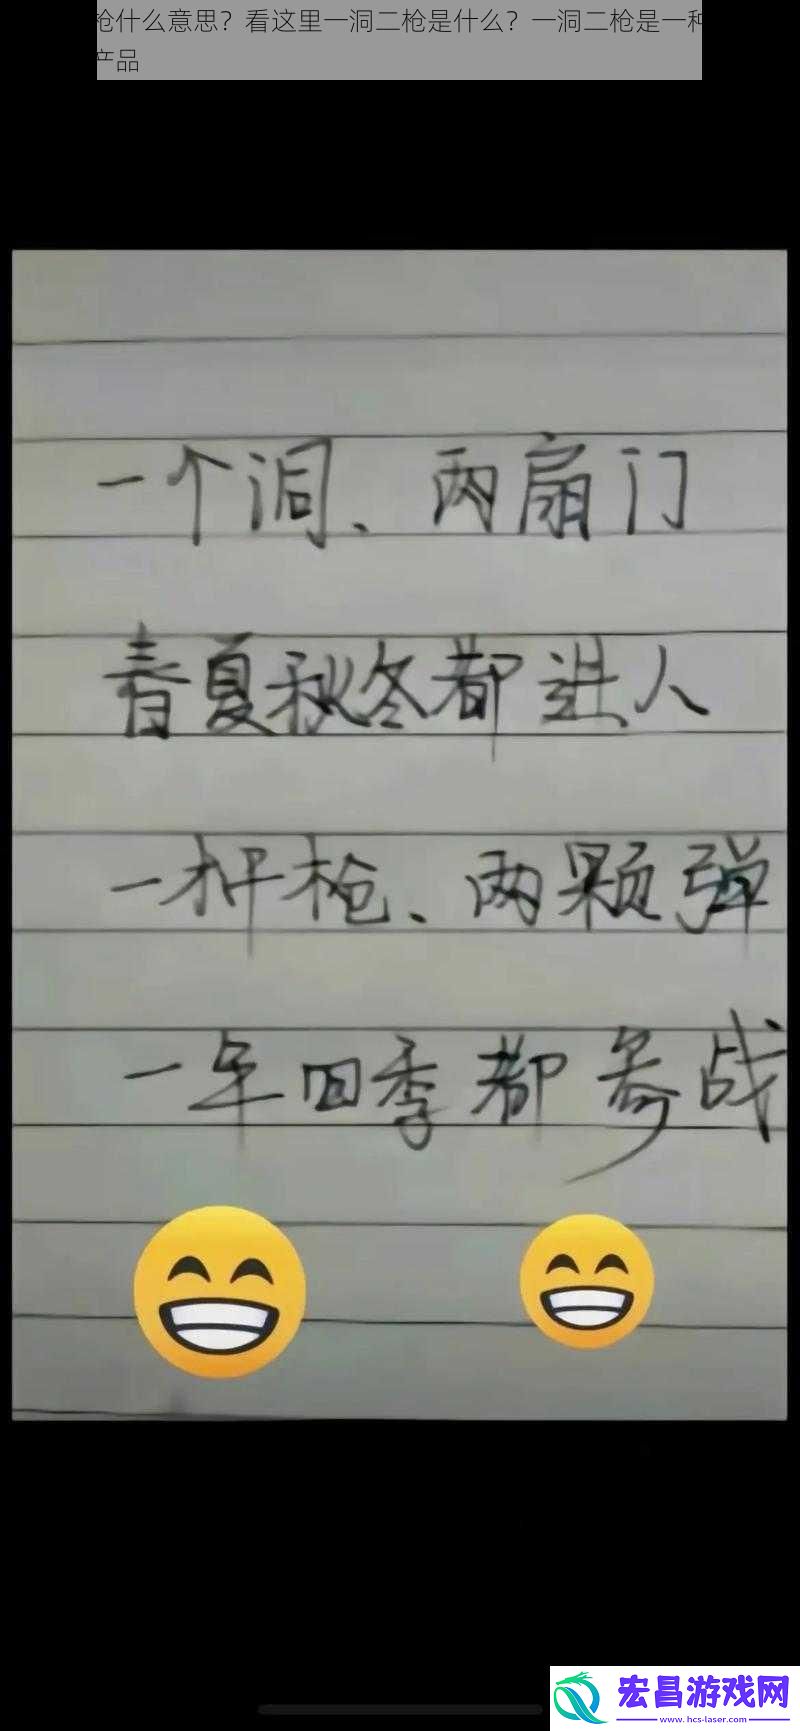 枪什么意思？看这里一洞二枪是什么？一洞二枪是一种
产品
一个洞、两扇门
春夏秋冬都进人
一杆枪、两颗弹
一年四季都参战
宏昌游戏网
www.hcs-laser.com